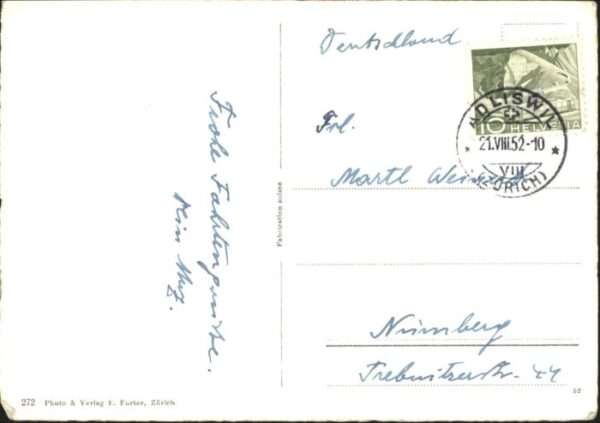 Frohe Fahrtengrüsse.
Deutschland
Frl.
Martl
Nürnberg
Trebnitzerstr. 44
10 HELVETIA
ADLISWIL
21.VIII.52-10
VIII
(ZÜRICH)
Fabrication suisse
272 Photo & Verlag E. Furter, Zürich.